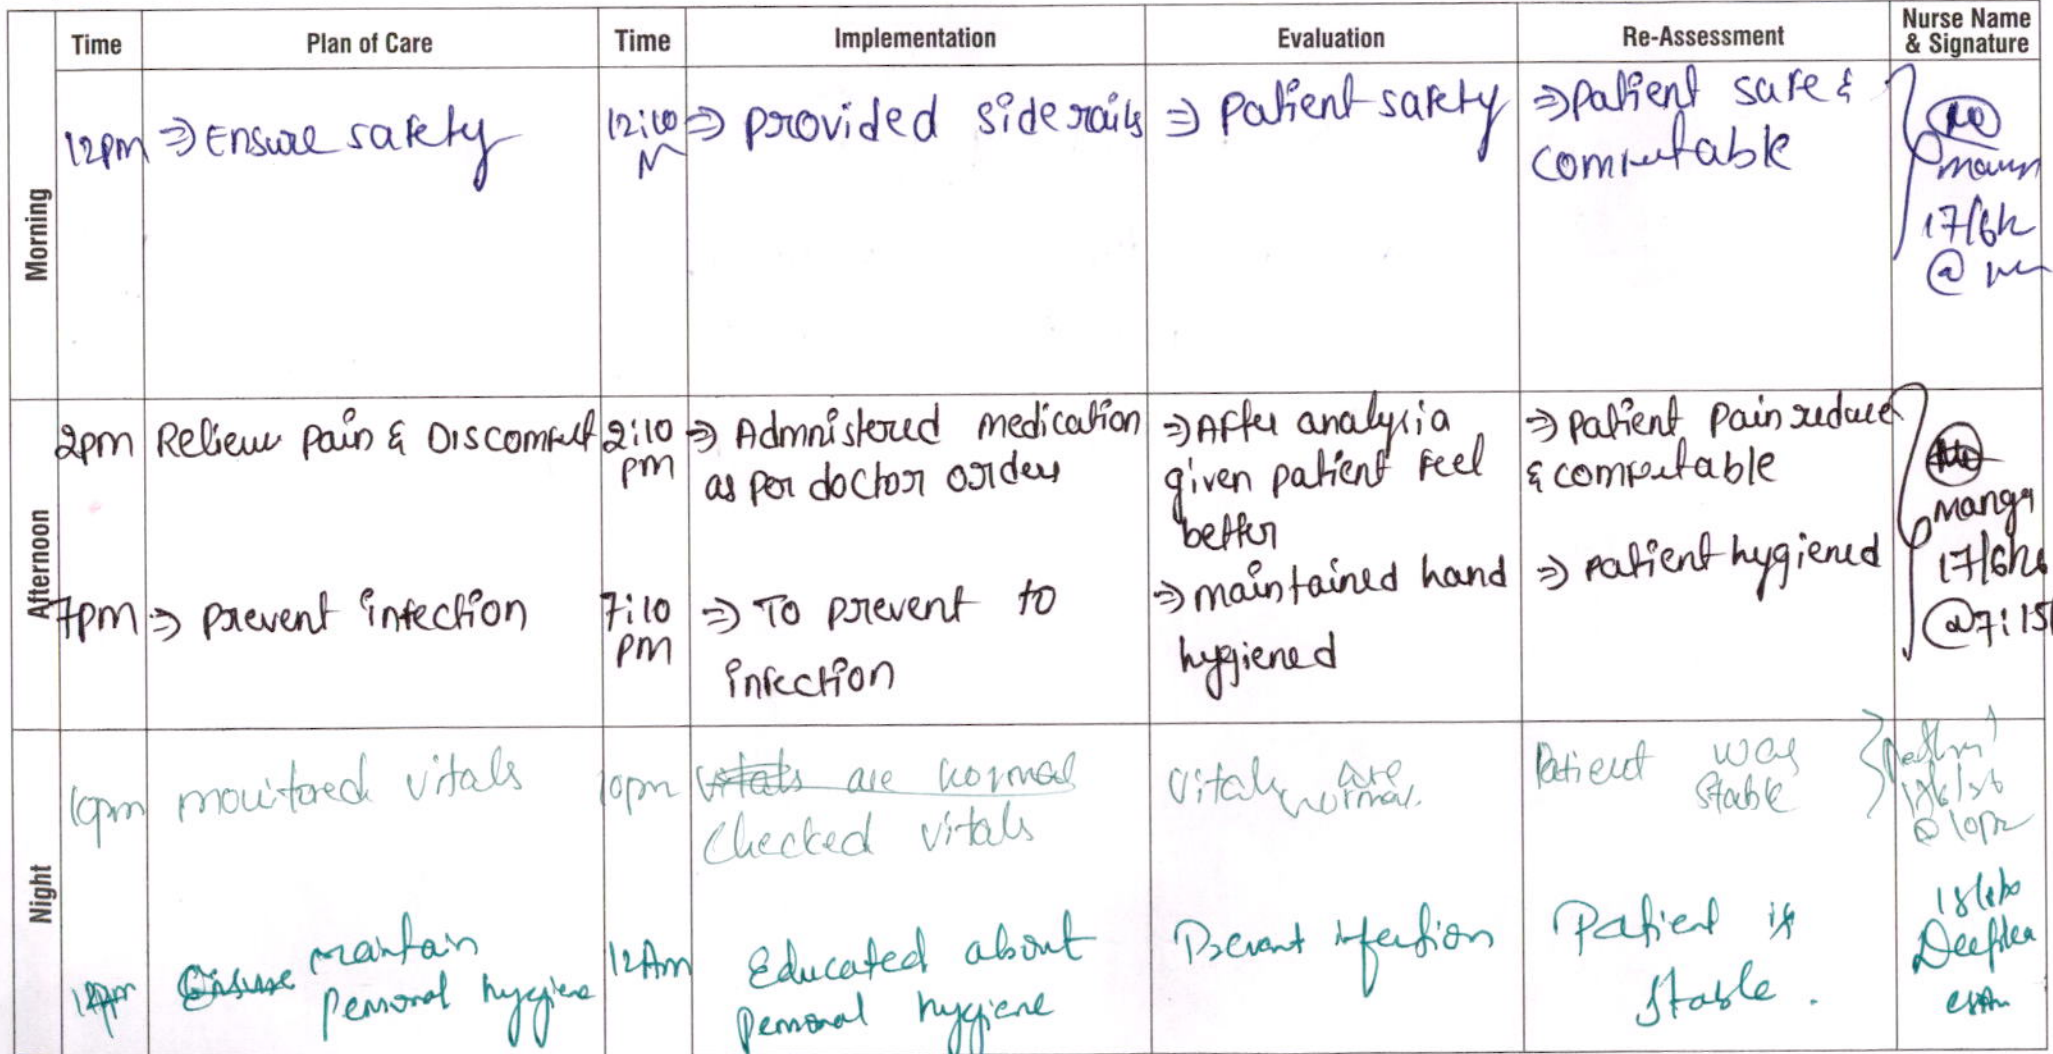 Time Plan of Care Time Implementation Evaluation Re-Assessment Nurse Name
& Signature
Morning
12pm ⇒ Ensure safety
⇒ provided side rails
⇒ Patient safety
⇒ patient safe &
comfutable
@
Afternoon
2pm Relieve pain & Discomfut
2:10
pm
⇒ Admnistered medication
as per doctor orders
⇒ After analgsia
given patient feel
better
⇒ patient pain reduce
& comfutable
Manga
7pm ⇒ prevent infection
7:10
pm
⇒ To prevent to
infection
⇒ maintained hand
hygiened
⇒ patient hygiened
@ 7:15
Night
10pm monitored vitals
10pm
vitals are normal
checked vitals
vitals are
normal.
Patient was
stable
@ 10pm
Ensure maintain
personal hygiene
12Am
Educated about
personal hygiene
Prevent infection
Patient is
stable.